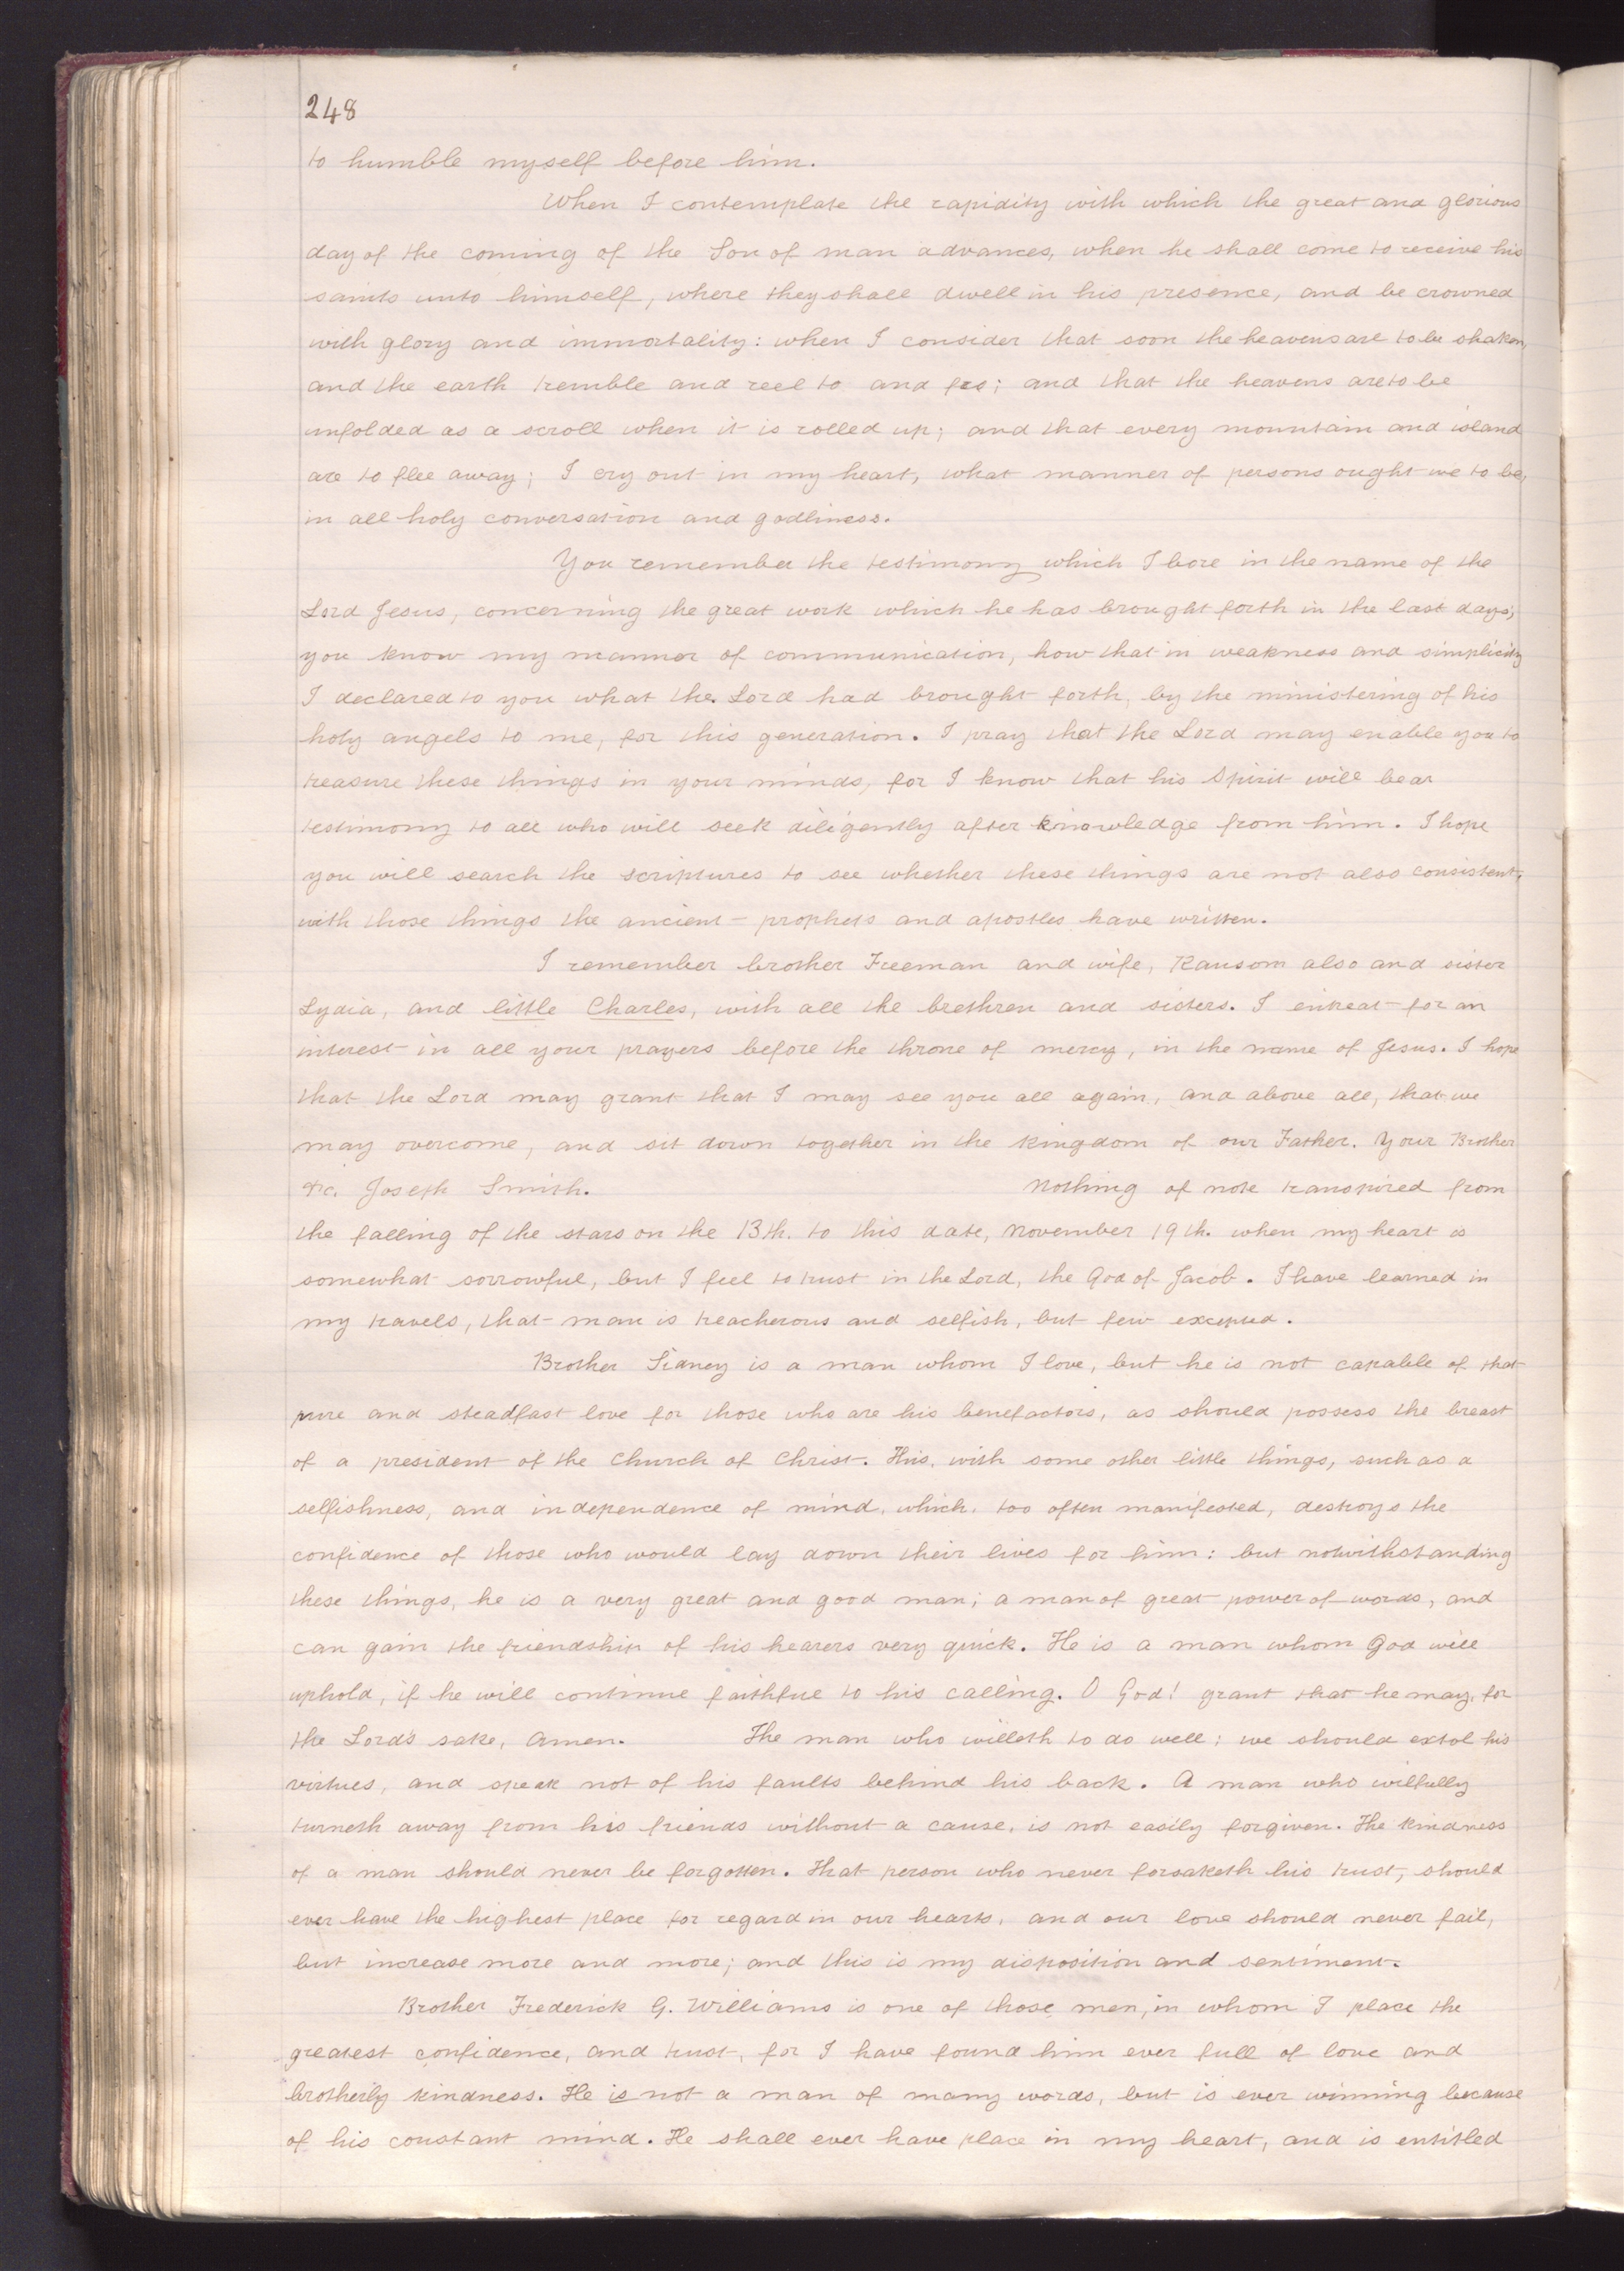 248
to humble myself before him.
When I contemplate the rapidity with which the great and glorious
day of the coming of the Son of man advances, when he shall come to receive his
saints unto himself, where they shall dwell in his presence, and be crowned
with glory and immortality: when I consider that soon the heavens are to be shaken,
and the earth tremble and reel to and fro; and that the heavens are to be
unfolded as a scroll when it is rolled up; and that every mountain and island
are to flee away; I cry out in my heart, what manner of persons ought we to be,
in all holy conversation and godliness.
You remember the testimony which I bore in the name of the
Lord Jesus, concerning the great work which he has brought forth in the last days;
you know my manner of communication, how that in weakness and simplicity
I declared to you what the Lord had brought forth, by the ministering of his
holy angels to me, for this generation. I pray that the Lord may enable you to
treasure these things in your minds, for I know that his Spirit will bear
testimony to all who will seek diligently after knowledge from him. I hope
you will search the scriptures to see whether these things are not also consistent,
with those things the ancient prophets and apostles have written.
I remember brother Freeman and wife, Ransom also and sister
Lydia, and little Charles, with all the brethren and sisters. I entreat for an
interest in all your prayers before the throne of mercy, in the name of Jesus. I hope
that the Lord may grant that I may see you all again, and above all, that we
may overcome, and sit down together in the kingdom of our Father. Your Brother
&c. Joseph Smith. Nothing of note transpired from
the falling of the stars on the 13th. to this date, November 19th. when my heart is
somewhat sorrowful, but I feel to trust in the Lord, the God of Jacob. I have learned in
my travels, that man is treacherous and selfish, but few excepted.
Brother Sidney is a man whom I love, but he is not capable of that
pure and steadfast love for those who are his benefactors, as should possess the breast
of a president of the Church of Christ. This, with some other little things, such as a
selfishness, and independence of mind, which, too often manifested, destroys the
confidence of those who would lay down their lives for him: but notwithstanding
these things, he is a very great and good man; a man of great power of words, and
can gain the friendship of his hearers very quick. He is a man whom God will
uphold, if he will continue faithful to his calling. O God! grant that he may, for
the Lord's sake, Amen. The man who willeth to do well; we should extol his
virtues, and speak not of his faults behind his back. A man who wilfully
turneth away from his friends without a cause, is not easily forgiven. The kindness
of a man should never be forgotten. That person who never forsaketh his trust, should
ever have the highest place for regard in our hearts, and our love should never fail,
but increase more and more; and this is my disposition and sentiment.
Brother Frederick G. Williams is one of those men, in whom I place the
greatest confidence, and trust, for I have found him ever full of love and
brotherly kindness. He is not a man of many words, but is ever winning because
of his constant mind. He shall ever have place in my heart, and is entitled